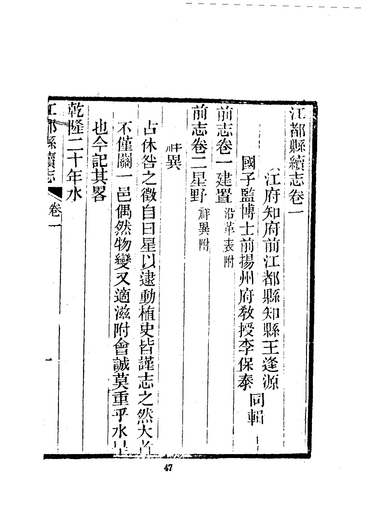 江都縣續志卷一
江府知府前江都縣知縣王逢源
國子監博士前揚州府敎授李保泰
同輯
前志卷一建置 沿革表附
前志卷二星野 祥異附
祥異
占休咎之徵自日星以逮動植史皆謹志之然大者
不僅關一邑偶然物變又適滋附會誠莫重乎水旱
也今記其畧
乾隆二十年水
江都縣續志 卷一
一
47